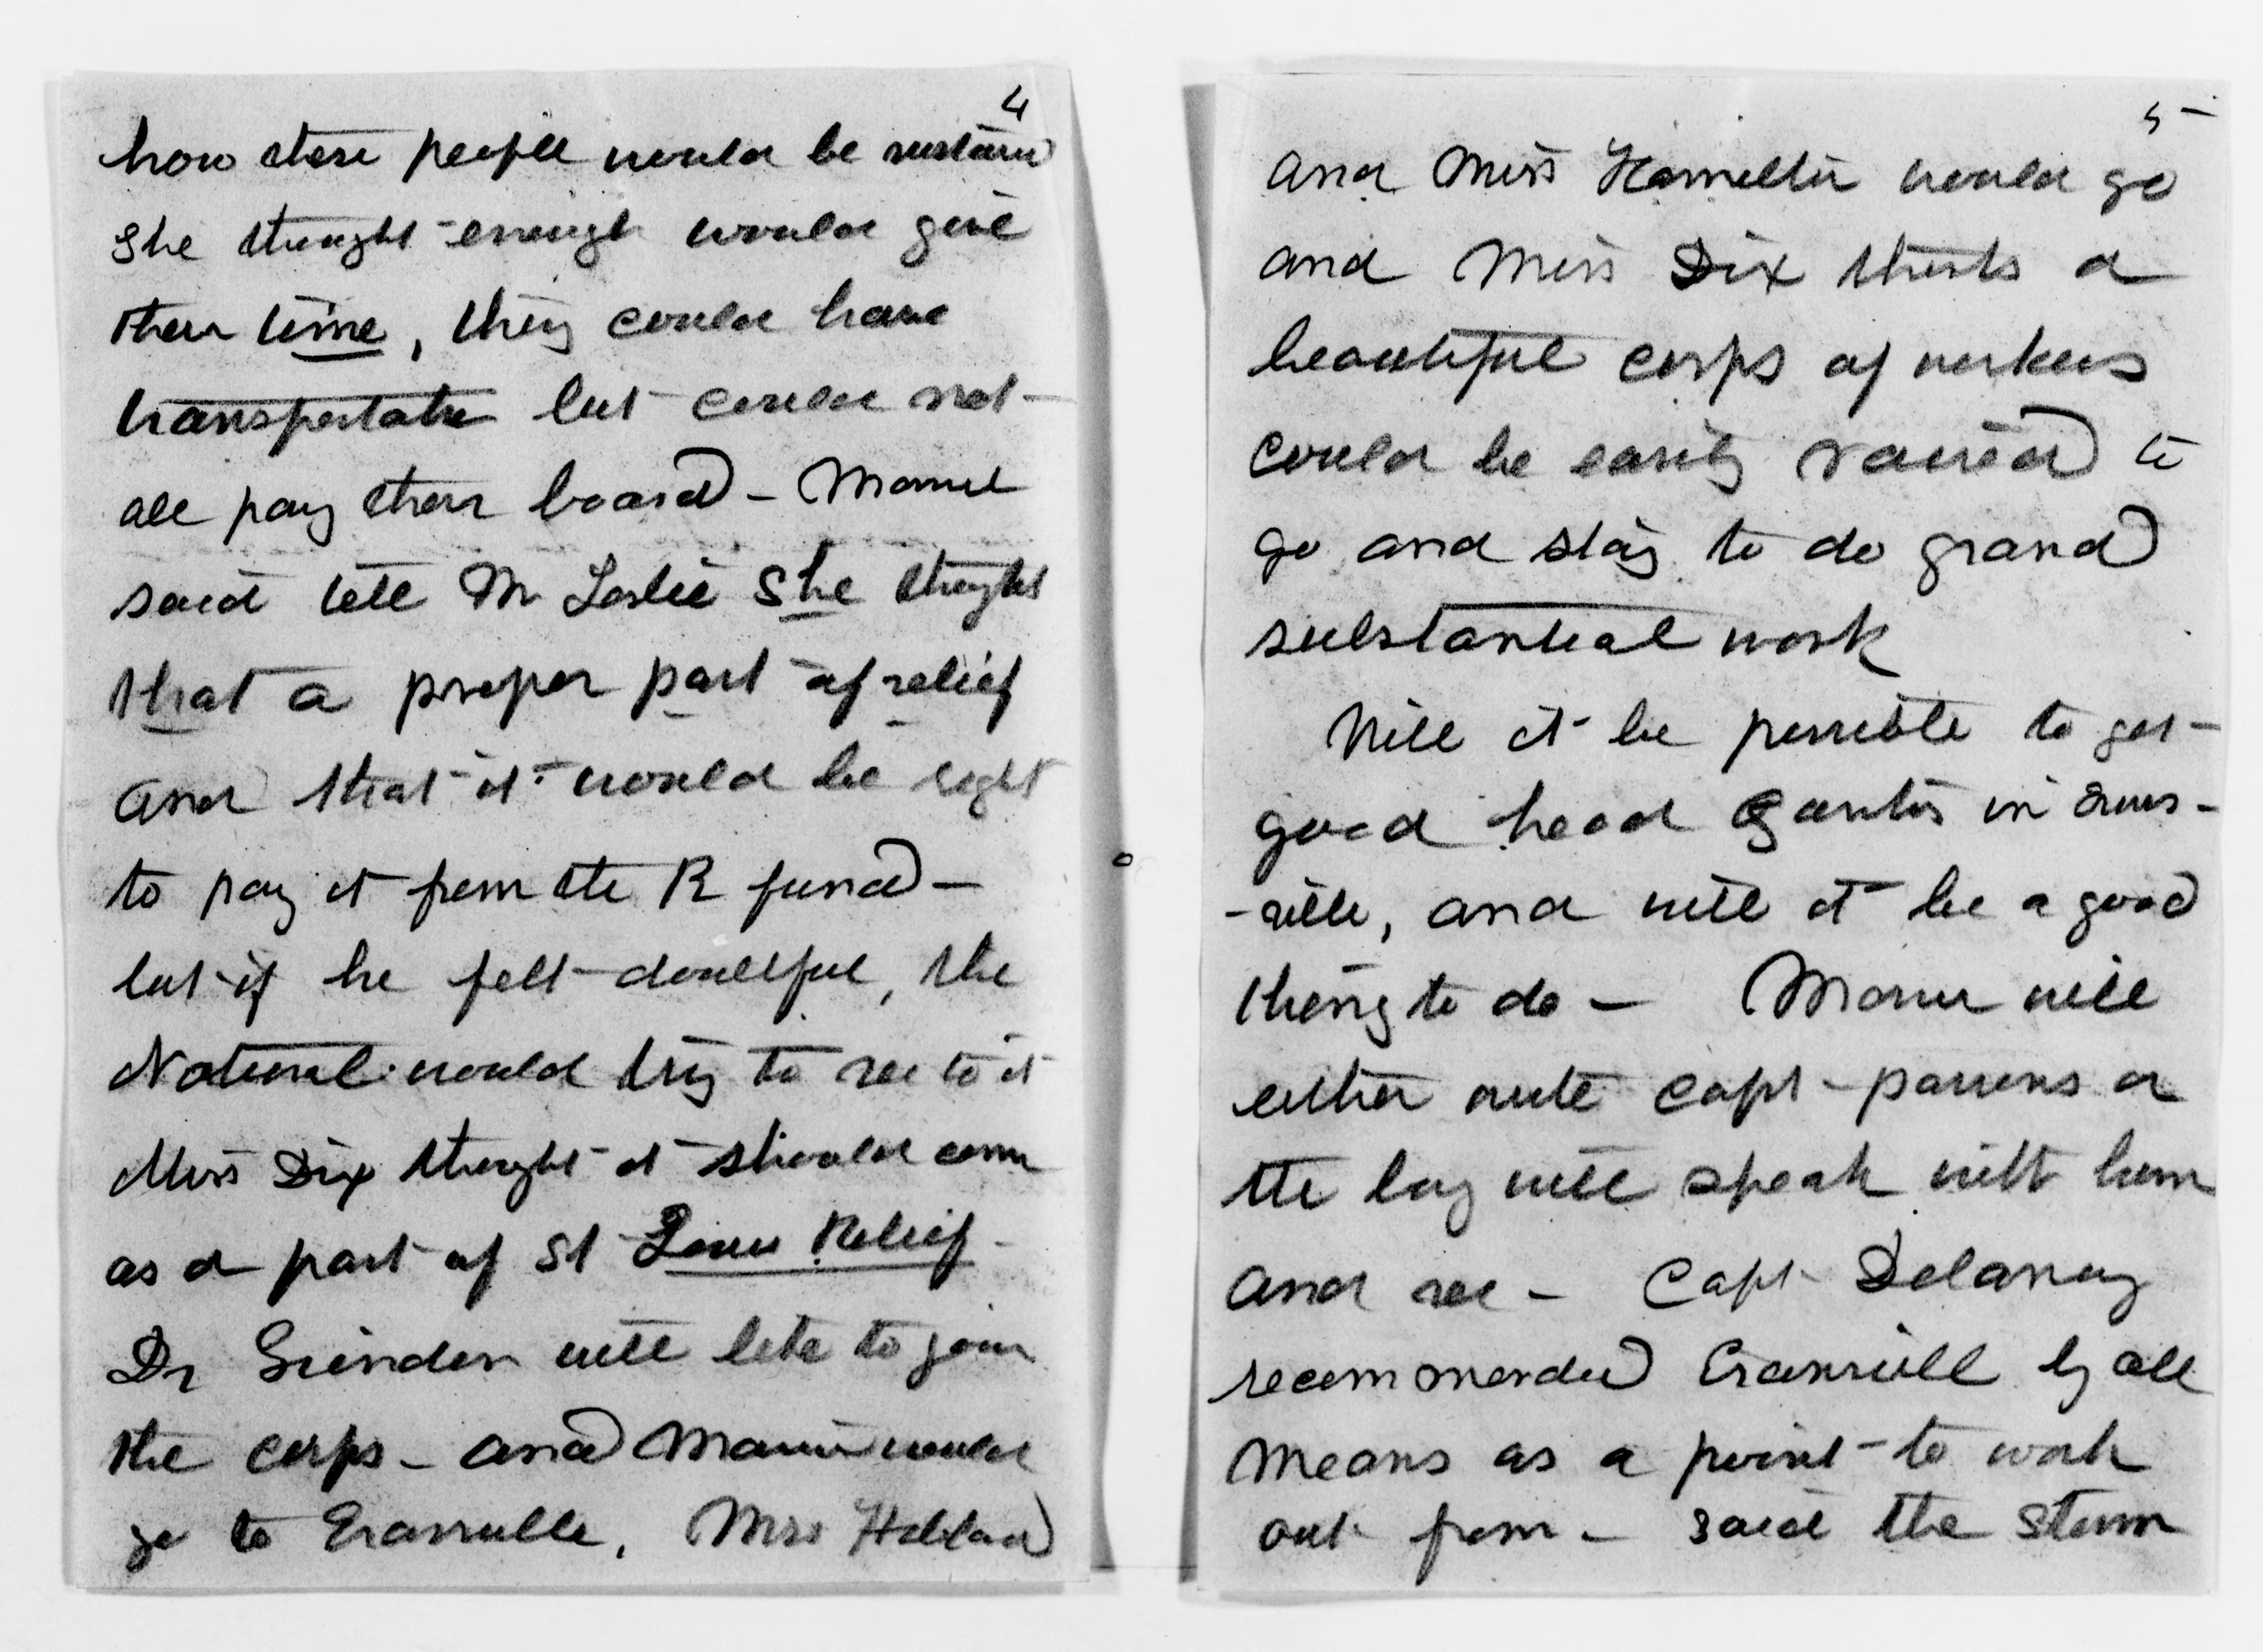 4
how these people would be sustained
She thought enough would give
their time, they could have
transportation but could not
all pay their board - Mamie
said tell Mr Leslie She thought
that a proper part of relief
and that it would be right
to pay it from the R fund -
but if he felt doubtful, the
National would try to see to it
Miss Dix thought it should come
as a part of St Louis Relief -
Dr Grinden will like to join
the corps - and Mamie would
go to Evansville, Mrs
5
and Miss Hamilton would go
and Miss Dix thinks a
beautiful corps of workers
could be easily raised to
go and stay to do grand
substantial work
Will it be possible to get
good head quarters in Evans-
-ville, and will it be a good
thing to do - Mamie will
either write Capt Parsons or
the boy will speak with him
and see - Capt Delaney
recommended Evansvill by all
means as a point to work
out from - said the storm